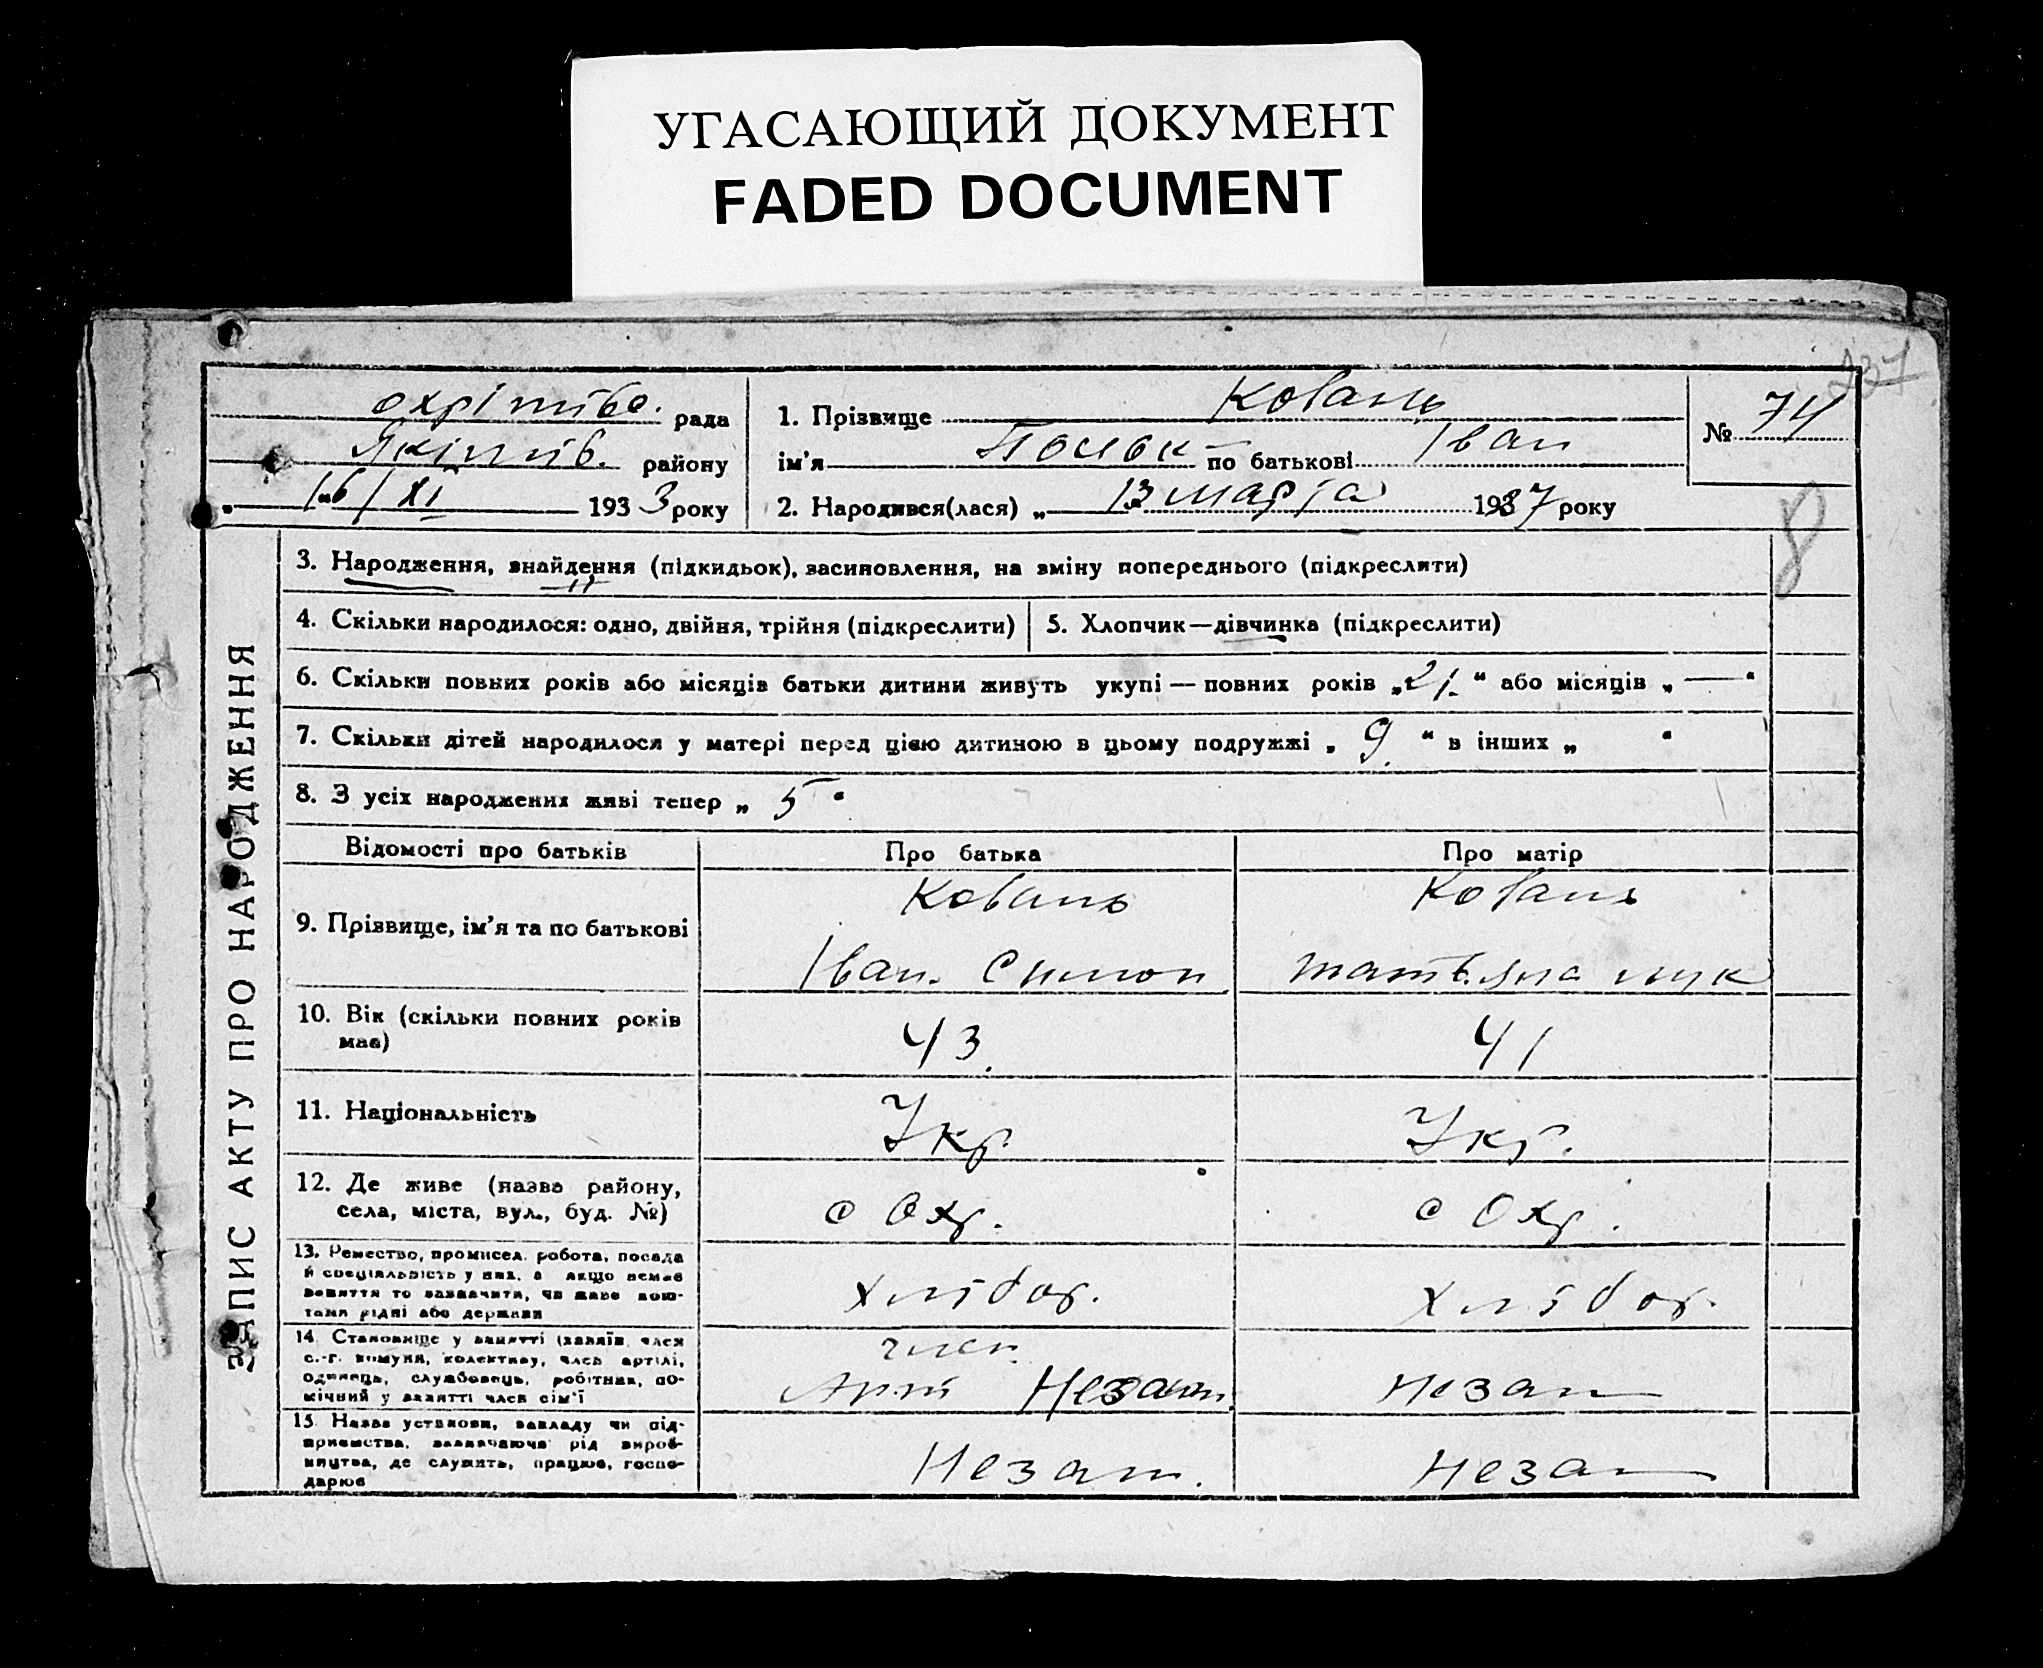 УГАСАЮЩИЙ ДОКУМЕНТ
FADED DOCUMENT
237
охрімів. рада
району
16/XI 1933 року
1. Прізвище Коваль
ім'я по батькові Іван
2. Народився(лася) „ 13 марта 1937 року
№ 74
8
ЗАПИС АКТУ ПРО НАРОДЖЕННЯ
3. Народження, знайдення (підкидьок), засиновлення, на зміну попереднього (підкреслити)
4. Скільки народилося: одно, двійня, трійня (підкреслити)
5. Хлопчик—дівчинка (підкреслити)
6. Скільки повних років або місяців батьки дитини живуть укупі — повних років „21." або місяців „—"
7. Скільки дітей народилося у матері перед цією дитиною в цьому подружжі „ 9. " в інших „ "
8. З усіх народжених живі тепер „ 5 "
Відомості про батьків
Про батька
Про матір
9. Прізвище, ім'я та по батькові
Коваль
Іван. Симон
Коваль
татьяна лук
10. Вік (скільки повних років
має)
43.
41
11. Національність
Укр.
Укр.
12. Де живе (назва району,
села, міста, вул., буд. №)
с Охр.
с Охр.
13. Ремество, промисел. робота, посада
й спеціяльність у них, а якщо немає
заняття то зазначити, чи живе кош-
тами рідні або держави
Хлібор.
Хлібор.
14. Становище у занятті (хазяїн, член
с.-г. комуни, колективу, член артілі,
одинець, службовець, робітник, по-
мічний у занятті член сім'ї
член.
Арті Незам.
Незам
15. Назва установи, закладу чи під-
приємства, зазначаючи рід вироб-
ництва, де служить, працює, госпо-
дарює
Незам.
Незам